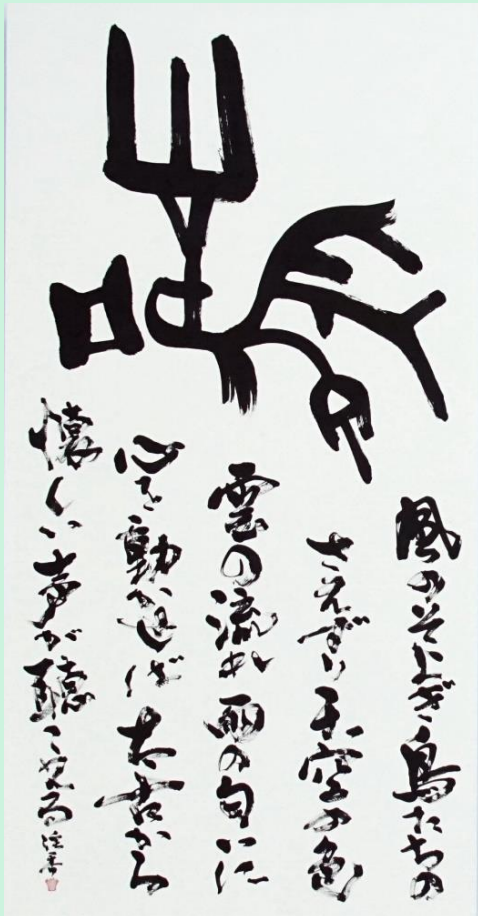 風のそよぎ 鳥たちの
さえずり 天空の色
雲の流れ 雨の匂いに
心を動かせば 太古から
懐しい声が聴こえる